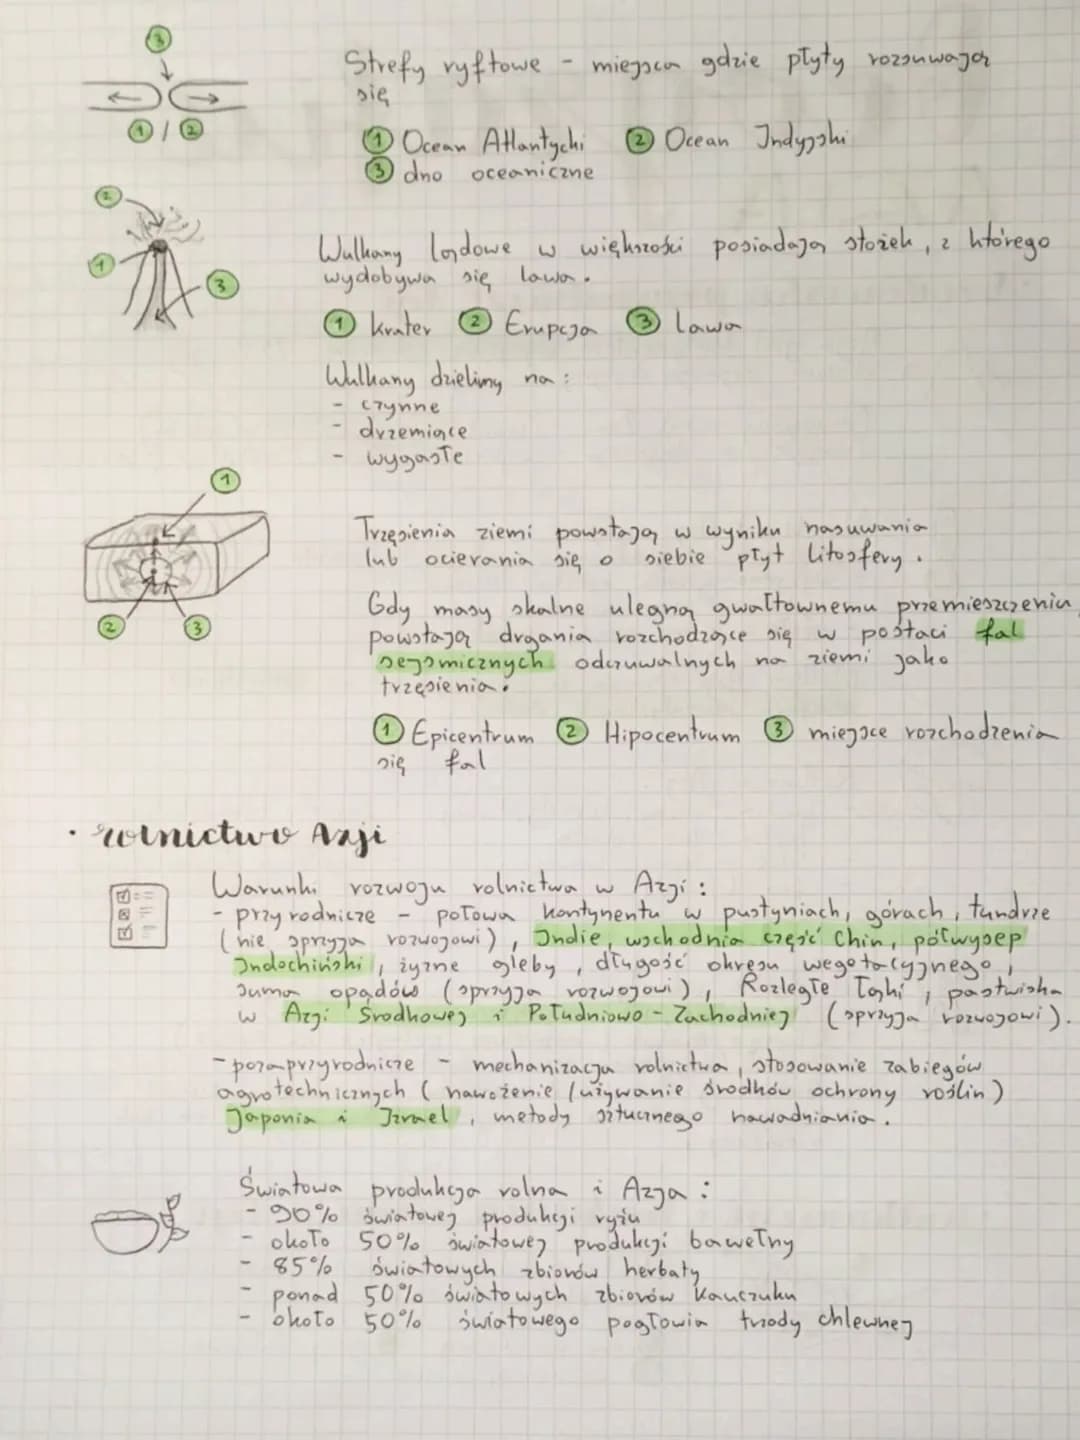 3
Strefy ryftowe - miejsca gdzie płyty rozsuwają
się
1 / 2
1 Ocean Atlantycki 2 Ocean Indyjski
3 dno oceaniczne
2
1
3
Wulkany lądowe w większości posiadają stożek, z którego
wydobywa się lawa.
1 krater 2 Erupcja 3 Lawa
Wulkany dzielimy na:
- czynne
- drzemiące
- wygasłe
1
2
3
Trzęsienia ziemi powstają w wyniku nasuwania
lub ocierania się o siebie płyt litosfery.
Gdy masy skalne ulegną gwałtownemu przemieszczeniu
powstają drgania rozchodzące się w postaci fal
sejsmicznych odczuwalnych na ziemi jako
trzęsienia.
1 Epicentrum 2 Hipocentrum 3 miejsce rozchodzenia
się fal
• rolnictwo Azji
Warunki rozwoju rolnictwa w Azji:
- przyrodnicze - połowa kontynentu w pustyniach, górach, tundrze
(nie sprzyja rozwojowi), Indie, wschodnia część Chin, półwysep
Indochiński, żyzne gleby, długość okresu wegetacyjnego,
suma opadów (sprzyja rozwojowi), Rozległe łąki, pastwiska
w Azji Środkowej i Południowo-Zachodniej (sprzyja rozwojowi).
- pozaprzyrodnicze - mechanizacja rolnictwa, stosowanie zabiegów
agrotechnicznych (nawożenie / używanie środków ochrony roślin)
Japonia i Izrael, metody sztucznego nawadniania.
Światowa produkcja rolna i Azja:
- 90% światowej produkcji ryżu
- około 50% światowej produkcji bawełny
- 85% światowych zbiorów herbaty
- ponad 50% światowych zbiorów kauczuku
- około 50% światowego pogłowia trzody chlewnej